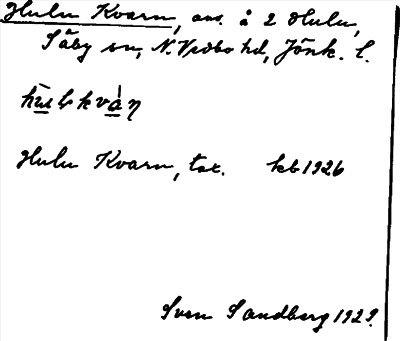 Hulu Kvarn, avs. å 2 Hulu,
Säby sn, N. Vedbo hd, Jönk. l.
Hulu Kvarn, tot. kb 1926
Sven Sandberg 1929.